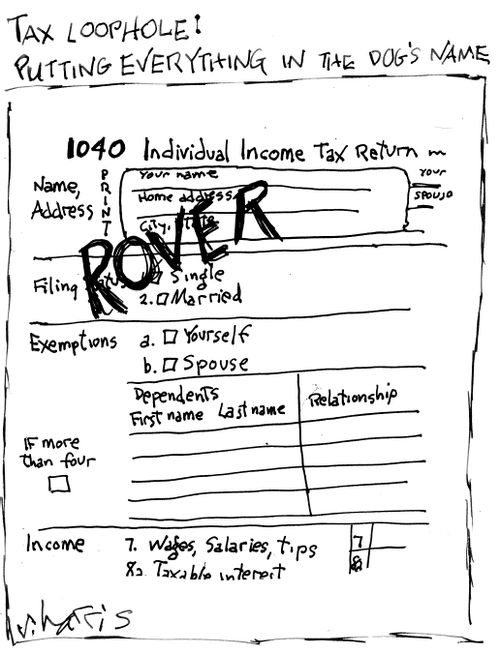 TAX LOOPHOLE:
PUTTING EVERYTHING IN THE DOG'S NAME
1040 Individual Income Tax Return
Name,
Address
PRINT
Your name
Home address
City, State
YOUR
SPOUSE
ROVER
Filing Status
Single
2. Married
Exemptions
a. Yourself
b. Spouse
Dependents
First name Last name
Relationship
IF more
than four
Income
7. Wages, Salaries, tips
7
8a. Taxable interest
8a
S. Harris